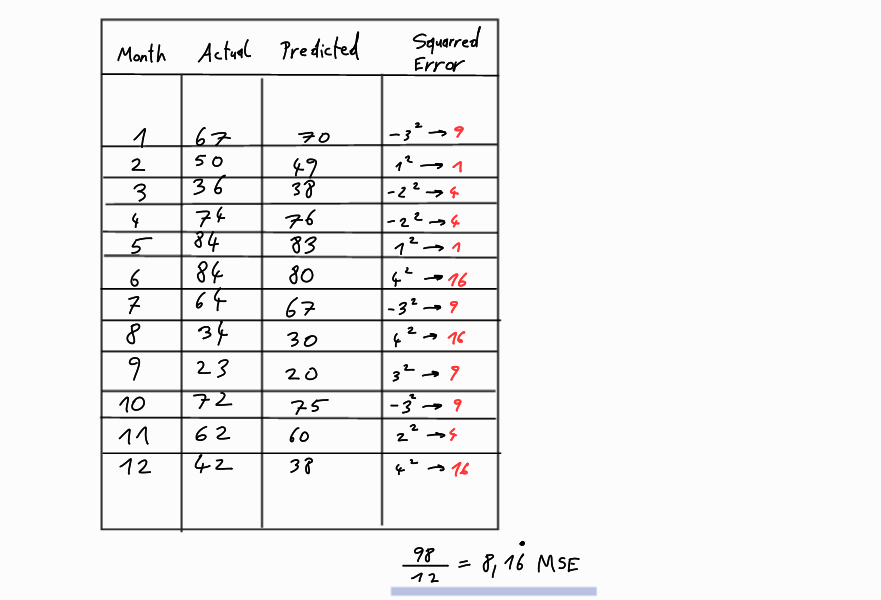 Month Actual Predicted Squarred Error
1 67 70 -3² → 9
2 50 49 1² → 1
3 36 38 -2² → 4
4 74 76 -2² → 4
5 84 83 1² → 1
6 84 80 4² → 16
7 64 67 -3² → 9
8 34 30 4² → 16
9 23 20 3² → 9
10 72 75 -3² → 9
11 62 60 2² → 4
12 42 38 4² → 16
98/12 = 8,16̇ MSE